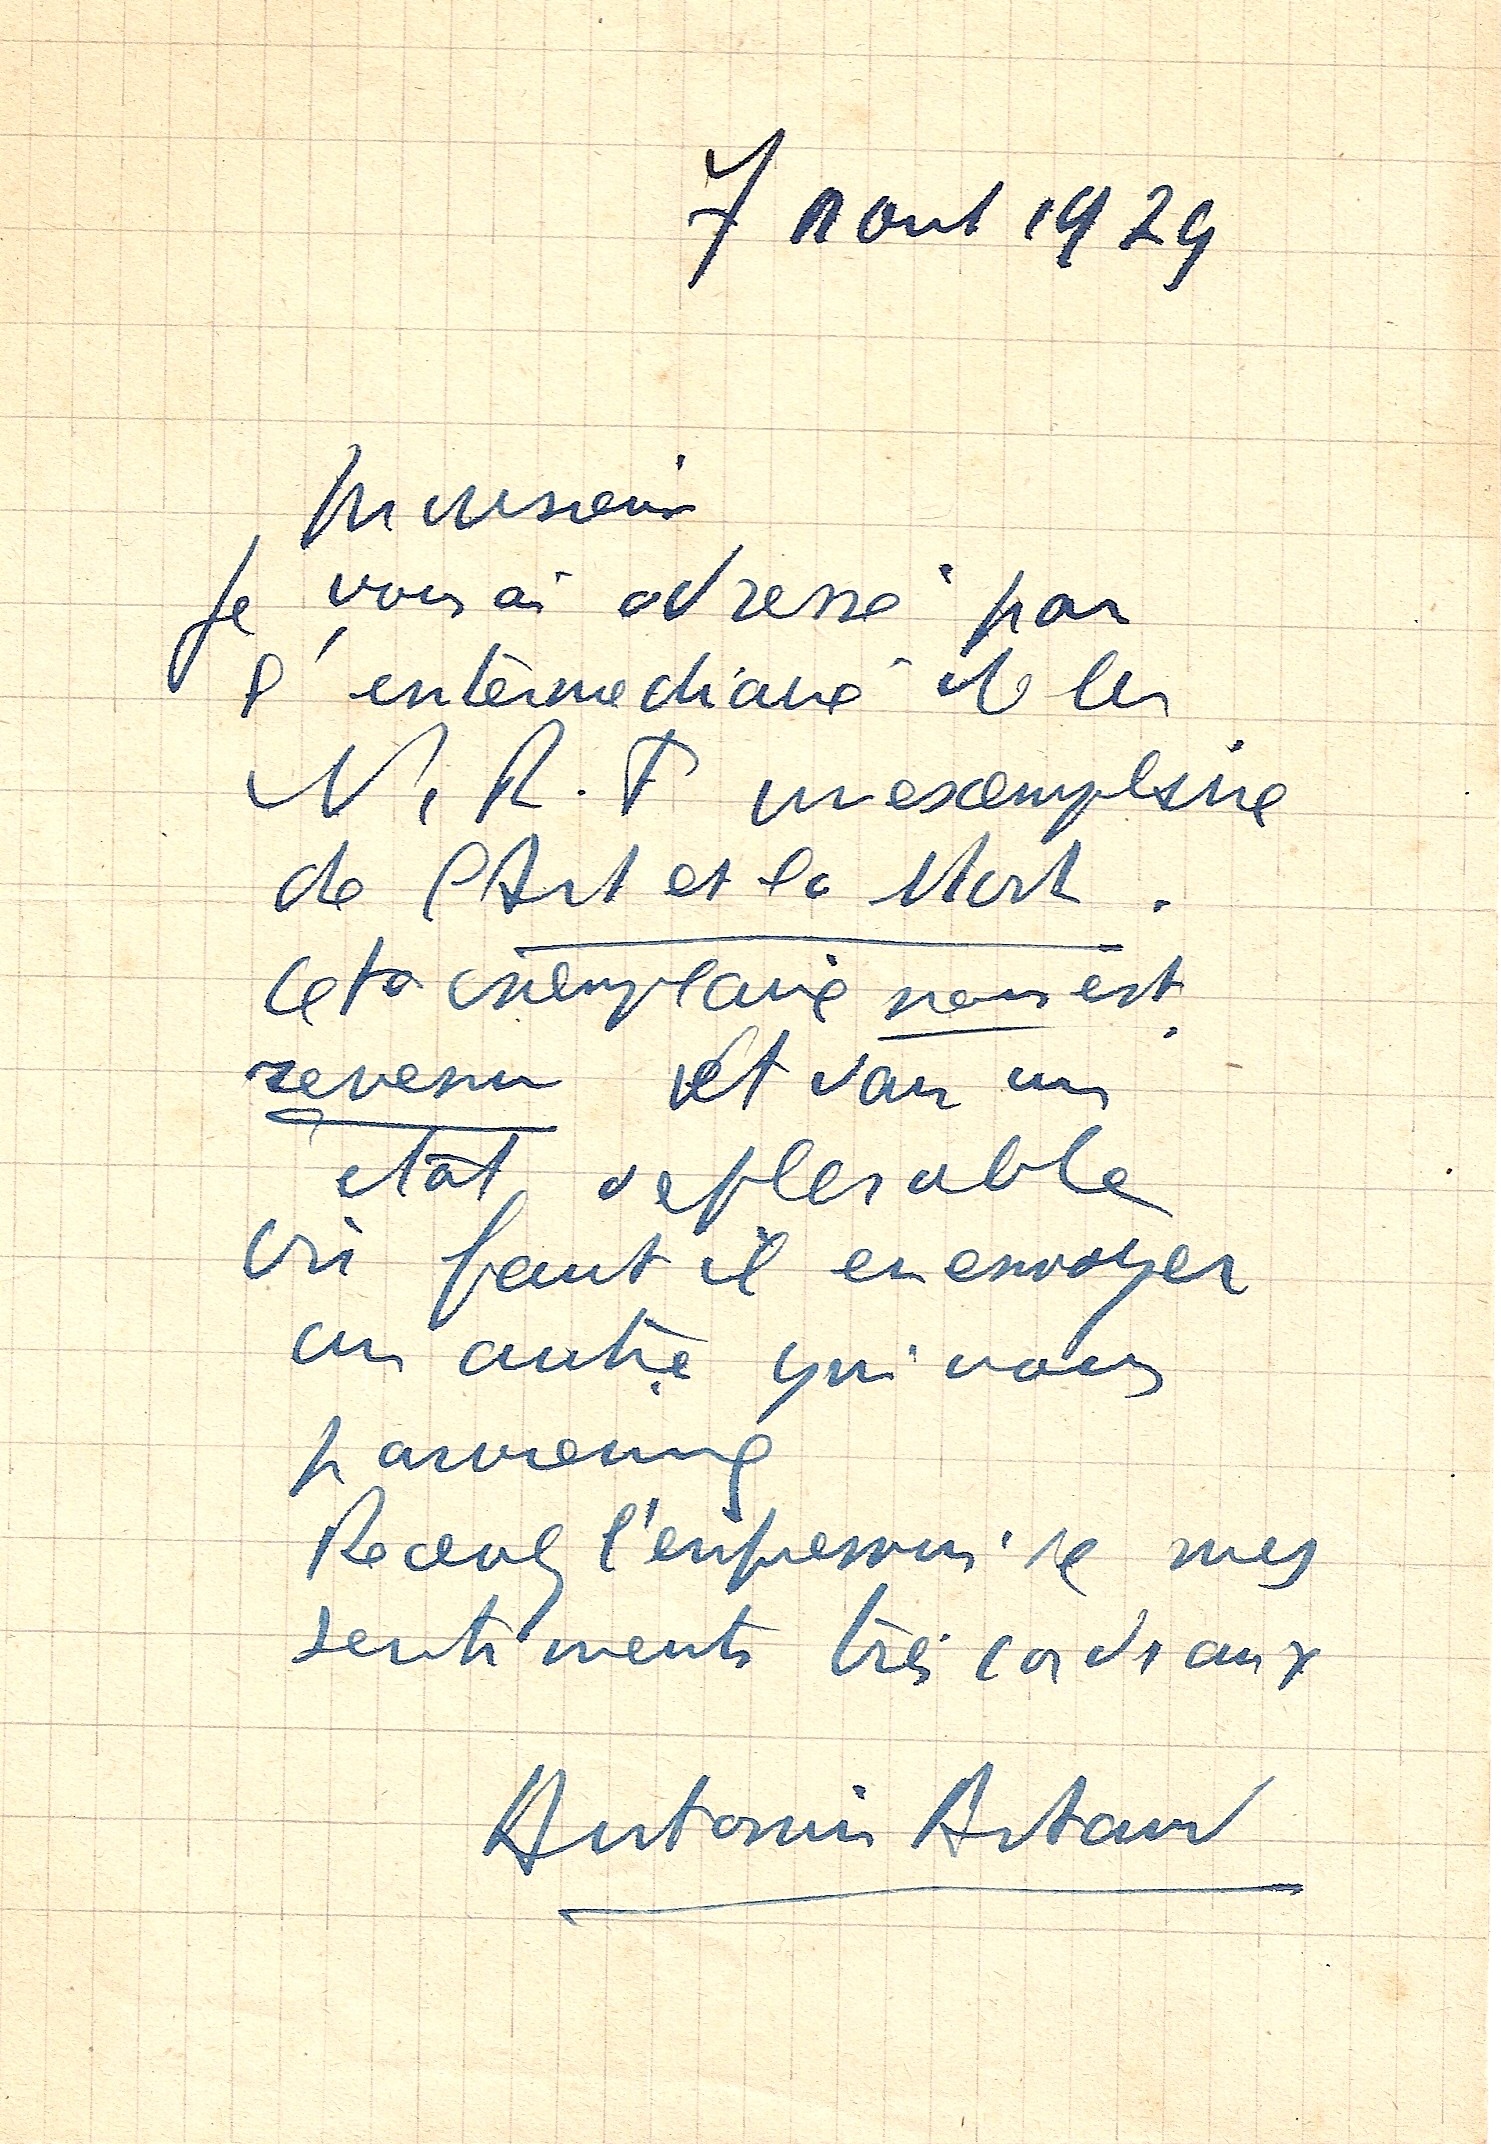 7 Aout 1929
Monsieur
Je vous ai adressé par
l'intermediaire de la
N.R.F un exemplaire
de l'Art et la Mort.
Cet exemplaire nous est
revenu et dans un
état deplorable
Où faut il en envoyer
un autre qui vous
parvienne
Recevez l'expression de mes
sentiments très cordiaux
Antonin Artaud